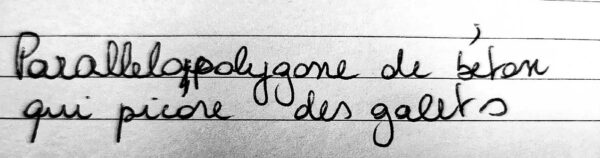 Parallelopolygone de béton
qui picore des galets